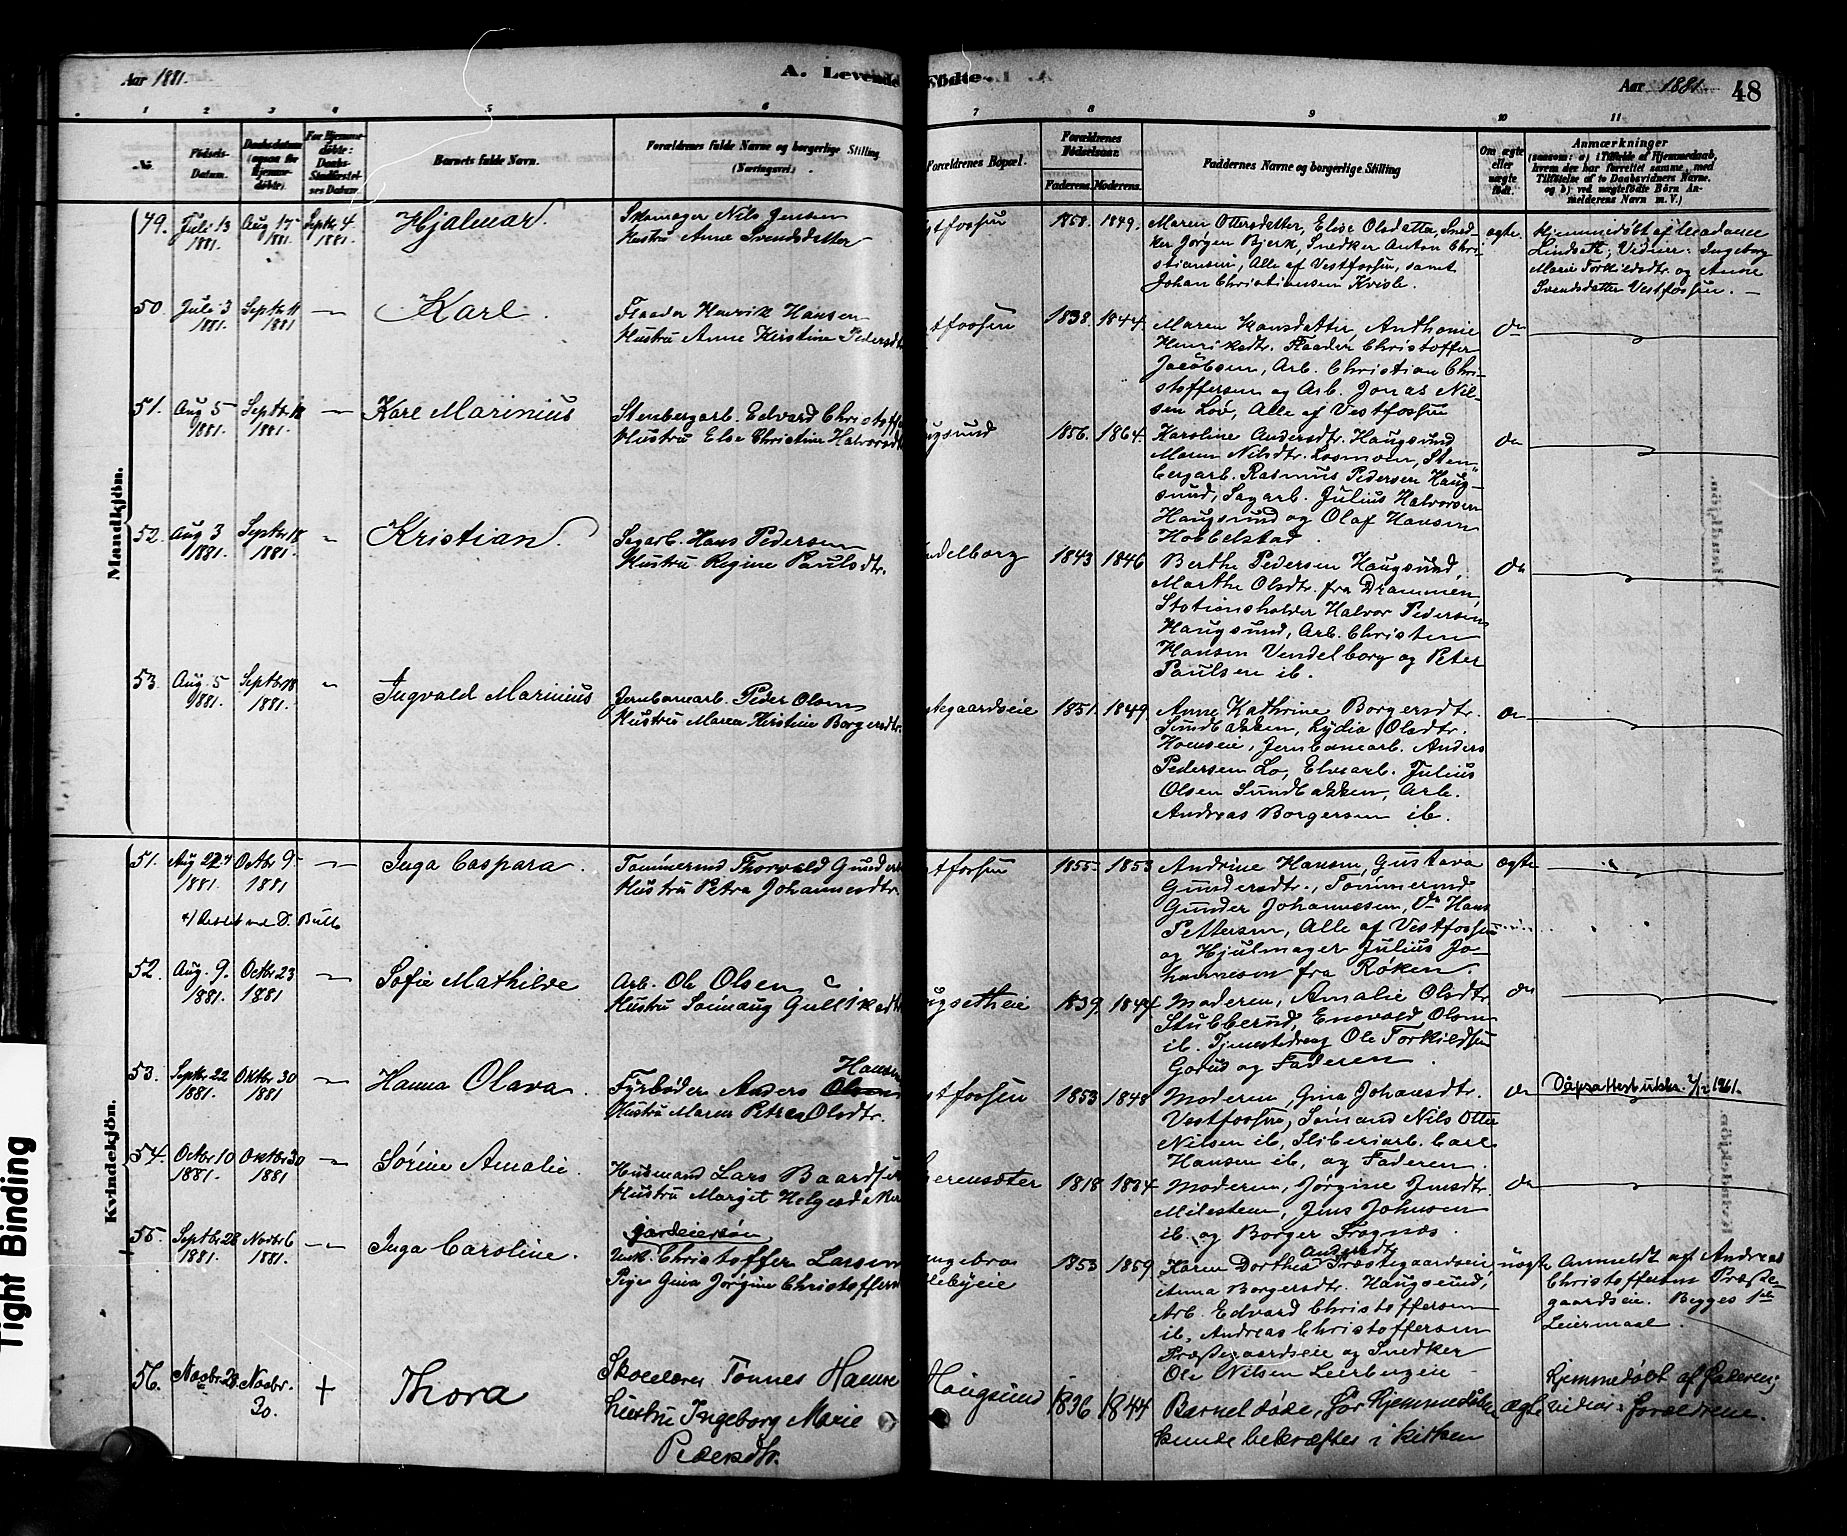 Aar 1881.
A. Levende Fødte.
Aar 1881.
48
1 2 3 4 5 6 7 8 9 10 11
No.
Fødsels-Datum.
Daabsdatum (ogsaa for Hjemmedøbte).
For Hjemmedøbte: Daabs-Stadfæstelses Datum.
Barnets fulde Navn.
Forældrenes fulde Navne og borgerlige Stilling (Næringsvei).
Forældrenes Bopæl.
Forældrenes Fødselsaar.
Faderens. Moderens.
Faddernes Navne og borgerlige Stilling
Om ægte eller uægte født.
Anmærkninger
(saasom: a) i Tilfælde af Hjemmedaab,
hvem der har forrettet samme, med
Tilføielse af to Daabsvidners Navne,
og b) ved uægtefødte Børn Anmelderens Navn m. V.)
Mandkjön.
49. Juli 13 1881. Aug 17 1881. Septbr 4 1881. Hjalmar.
Skomager Nils Jensen
Hustru Anne Svendsdatter
stfossen 1858. 1849.
Maren Ottersdatter, Elise Olsdatter, Sned-
ker Jørgen Bjerk, Snedker Anton Chri-
stiansen, Alle af Vestfossen, samt
Johan Christiansen Kvisle.
ægte.
Hjemmedøbt af Madame
Lindseth, Vidner: Ingeborg
Marie Torkildsdtr. og Anne
Svendsdatter Vestfossen. —
50. Juli 3 1881. Septbr 11 1881 — Karl.
Flaader Henrik Hansen
Hustru Anne Kirstine Pedersdt
stfossen 1838. 1844.
Maren Hansdatter, Anthonie
Henriksdtr. Flaader Christoffer
Jacobsen, Arb. Christian Chri-
stoffersen og Arb. Jonas Nil-
sen Lov, Alle af Vestfossen
do
51. Aug 5 1881. Septbr 18 1881. — Karl Marinius
Stenbergarb. Edvard Christoff
Hustru Else Christine Halvorsdt
ugsund 1856. 1864.
Karoline Andersdtr. Haugsund
Maren Nilsdtr. Losmoen, Sten-
bergarb. Rasmus Pedersen Haug-
sund, Sagarb. Julius Halvorsen
Haugsund og Olaf Hansen
Hobbelstad.
do
52. Aug 3 1881. Septbr 18 1881. " Kristian.
Sagarb. Hans Pedersen
Hustru Regine Paulsdtr.
ndelborg 1843 1846
Berthe Pedersen Haugsund,
Marthe Olsdtr. fra Drammen,
Stationsholder Halvor Pedersen
Haugsund, Arb. Christen
Hansen Vendelborg og Peter
Paulsen ib.
do
53 Aug. 5 1881. Septbr 18 1881. " Ingvald Marinius
Jernbanearb. Peder Olsen
Hustru Maren Kirstine Borgersdtr.
stegaardseie 1851. 1849
Anne Kathrine Borgersdtr.
Sundbakken, Lydia Olsdtr.
Hoenseie, Jernbanearb. Anders
Pedersen Lo, Elvearb. Julius
Olsen Sundbakken, Arb.
Andreas Borgersen ib.
do
Kvindekjön.
51. Aug 22 1881. Octbr 9 1881 — Inga Caspara.
Tømmermd Thorvald Gunders
Hustru Petra Johannesdtr.
stfossen 1855. 1853
Andrine Hansen, Gustava
Gundersdtr., Tømmermd
Gunder Johannessen, do Hans
Pettersen, Alle af Vestfossen
og Hjulmager Julius Jo-
hannesen fra Røken.
ægte
52. Aug. 9. 1881. Octbr 23 1881 — Sofie Mathilde
Arb. Ole Olsen
Hustru Sønnaug Gulliksdt
ugsetheie 1839. 1844
Moderen, Amalie Olsdtr.
Stubberud, Enevold Olsen
ib. Tjenestedreng Ole Torkildsen
Gorud og Faderen.
do
53. Septbr 22 1881. Oktbr 30 1881 — Hanna Olava.
Fyrbøder Anders Hansen
Hustru Maren Petrea Olsdtr.
stfossen 1853 1848
Moderen, Gina Johansdtr.
Vestfossen, Sømand Nils Otto
Nilsen ib, Sliberiarb. Carl
Hansen ib, og Faderen.
do
Dåpsattest utsk. 2/12 1961.
54. Octbr 10 1881. Oktbr 30 1881 — Sørine Amalie.
Husmand Lars Baardsen
Hustru Margit Helgesdatter
erensæter 1818 1834
Moderen, Jørgine Jensdtr.
Milesteen, Jens Johnsen
ib. og Borger Fragnæs
do
55. Septbr 28 1881. Novbr 6 1881. — Inga Caroline.
gardeiersøn
Unk. Christoffer Larsen
Pige Gina Jørgine Christoffers
ngebra
lebyeie 1853 1859
Karen Dorthea Andersdtr Præstegaardseie,
Anna Borgersdtr. Haugsund,
Arb. Edvard Christoffersen
ib, Andreas Christoffersen
Præstegaardseie og Snedker
Ole Nilsen Leerbergeie
uægte
Anmeldt af Andreas
Christoffersen Præste-
gaardseie. Begges 1ste
Leiermaal.
56. Novbr 28 Novbr. 30. + Thora
Skolelærer Tønnes Hanse
Hustru Ingeborg Marie
Pedersdtr.
Hougsund 1836 1844
Barnet døde, før Hjemmedåben
kunde bekræftes i kirken
ægte
Hjemmedøbt af Faderen;
vidner: Forældrene.
Tight Binding